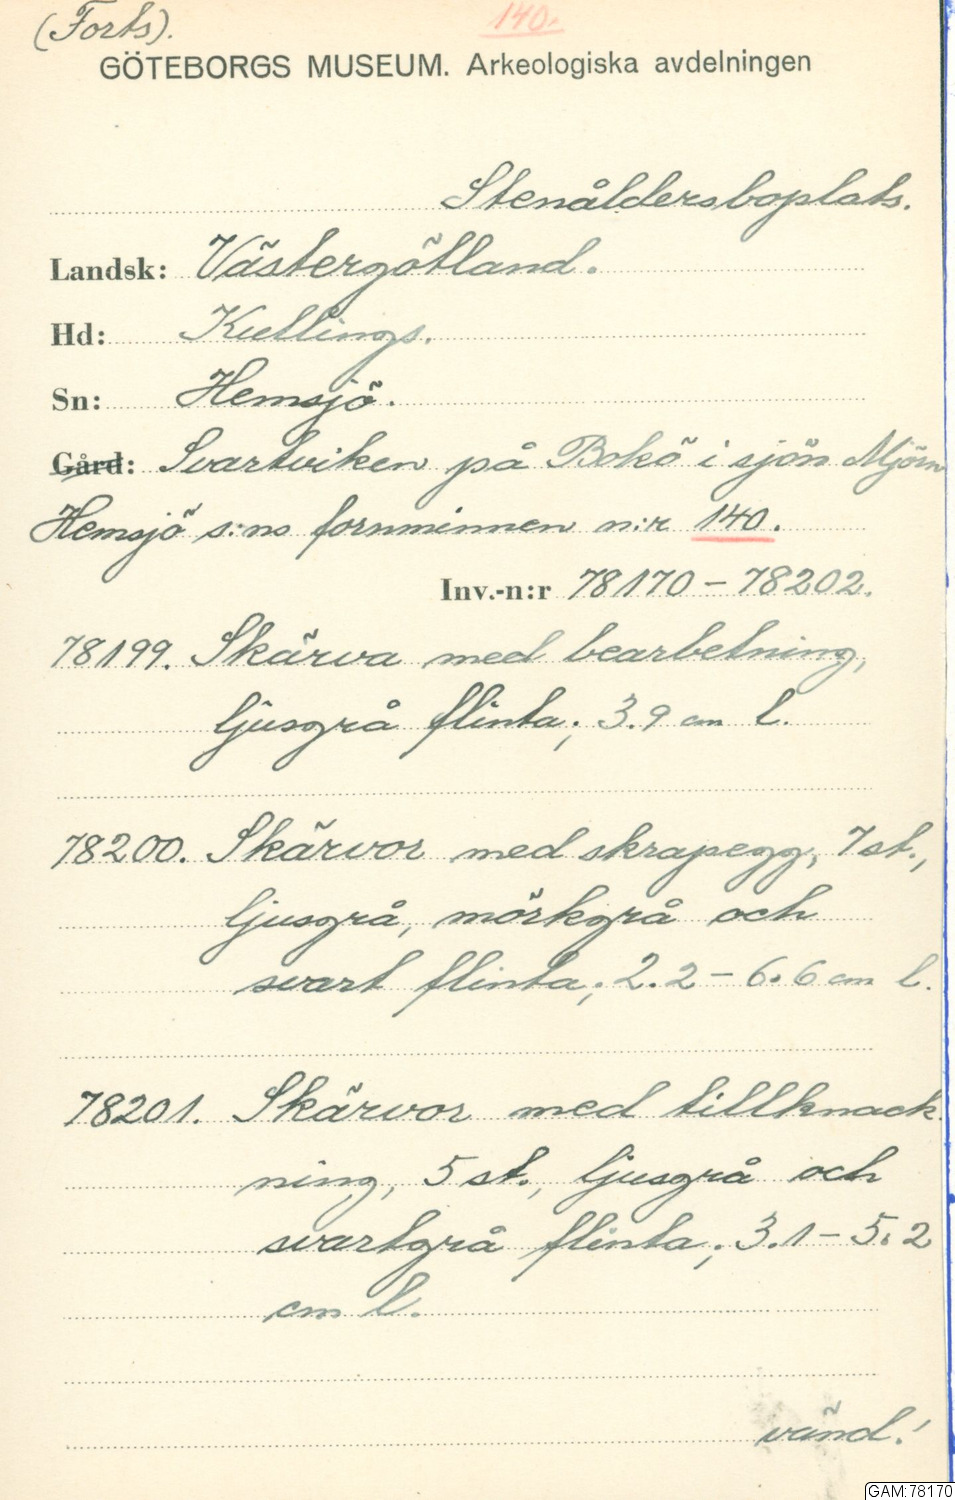 (Forts).
140.
GÖTEBORGS MUSEUM. Arkeologiska avdelningen
Stenåldersboplats.
Landsk: Västergötland.
Hd: Kullings.
Sn: Hemsjö.
Gård: Svartviken på Bokö i sjön Mjörn
Hemsjö s:ns fornminnen n:r 140.
Inv.-n:r 78170 – 78202.
78199. Skärva med bearbetning,
ljusgrå flinta; 3.9 cm l.
78200. Skärvor med skrapegg, 7 st.,
ljusgrå, mörkgrå och
svart flinta; 2.2 – 6.6 cm l.
78201. Skärvor med tillknack-
ning, 5 st., ljusgrå och
svartgrå flinta; 3.1 – 5.2
cm l.
vänd!
GAM:78170